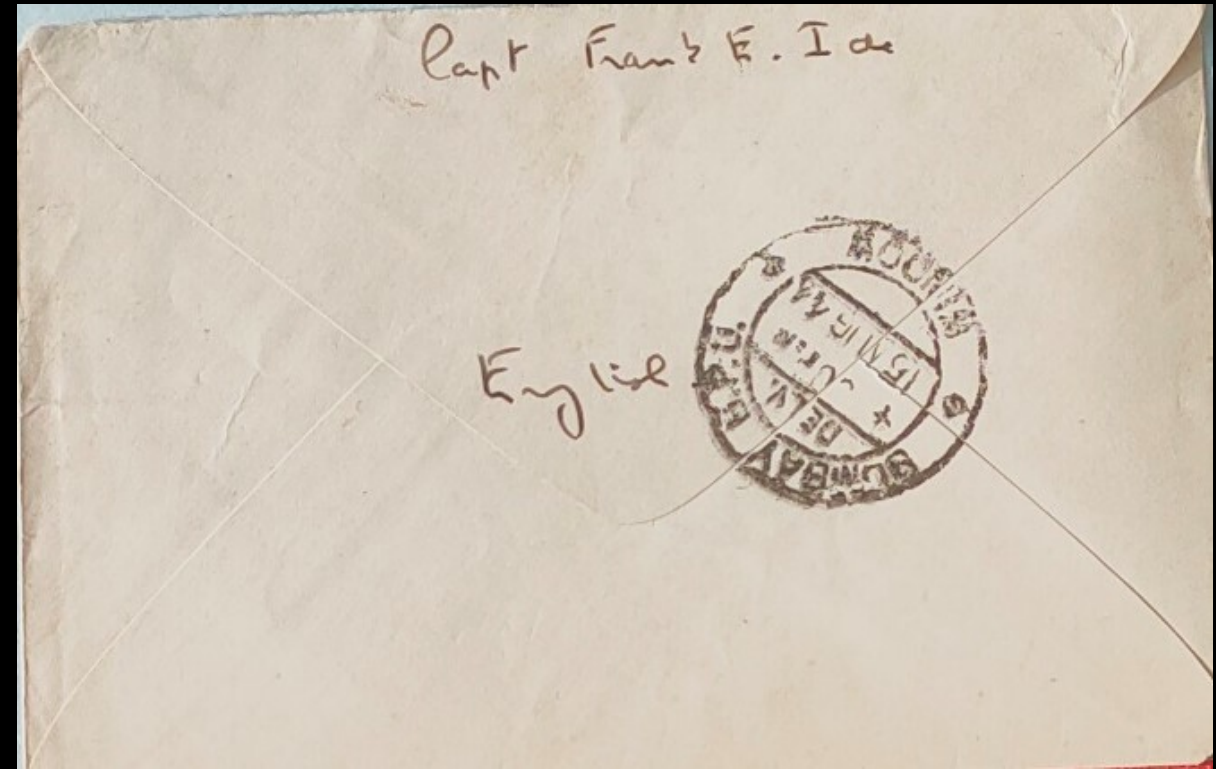 Capt Frank E. Ide
English
BOMBAY G.P.O.
DELV.
15 AUG 44